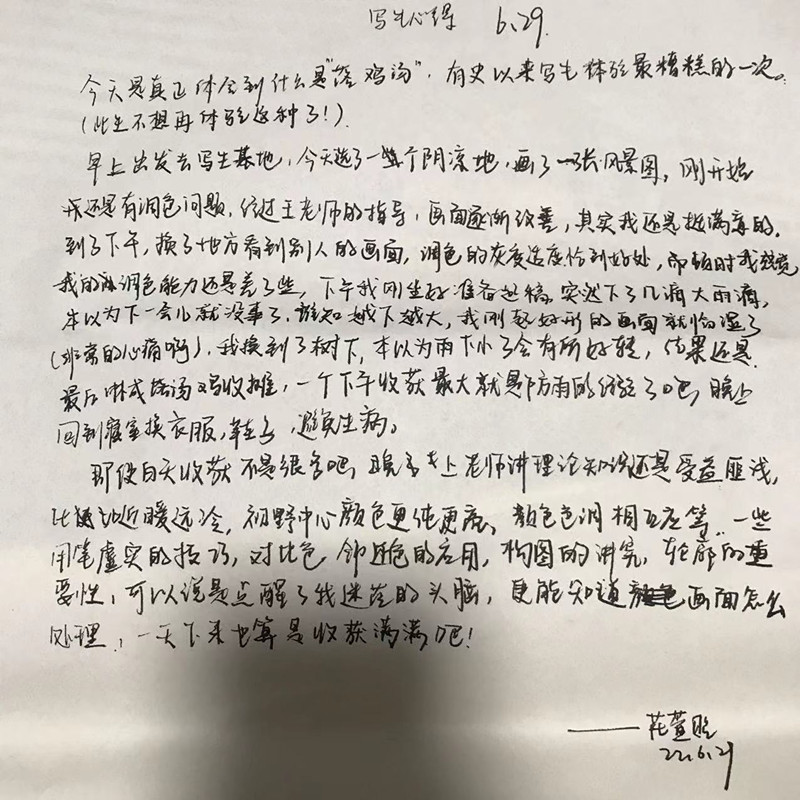 写生心得 6.29.
今天是真正体会到什么是“落鸡汤”,有史以来写生体验最糟糕的一次。
(此生不想再体验这种了!).
早上出发去写生基地,今天选了一整个阴凉地,画了一张风景图,刚开始
还是有调色问题,经过王老师的指导,画面逐渐改善,其实我还是挺满意的.
到了下午,换了地方看到别人的画面,调色的灰度适应恰到好处,那暂时我感觉
我的调色能力还是差了些,下午我刚坐好准备起稿,突然下了几滴大雨滴,
本以为下一会儿就没事了,谁知越下越大,我刚起好形的画面就临湿了
(非常的心痛啊).我换到了树下,本以为雨下小了会有所好转,结果还是
最后淋成落汤鸡收摊,一个下午收获最大就是防雨的经验了吧,晚上
回到寝室换衣服,鞋子,避免生病。
那使白天收获不是很多吧,晚上老师讲理论知识还是受益匪浅,
比近暖远冷,视野中心颜色更纯更,颜色色调相互应等.一些
用笔虚实的技巧,对比色邻近色的应用,构图的讲究,轮廓的重
要性,可以说是点醒了我迷茫的头脑,更能知道画面怎么
处理,一天下来也算是收获满满吧!
——花萱
22.6.29